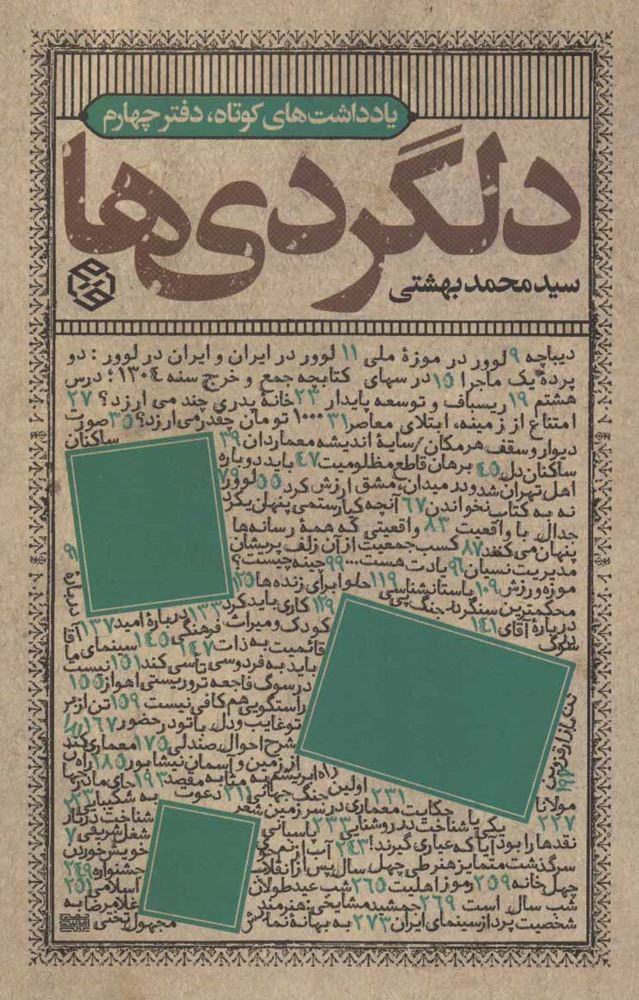 یادداشت‌های کوتاه، دفتر چهارم
دلگردی‌ها
سید محمد بهشتی
دیباچه ۹ لوور در موزهٔ ملی ۱۱ لوور در ایران و ایران در لوور: دو
پردهٔ یک ماجرا ۱۵ درسهای کتابچه جمع و خرج سنه ۱۳۰۴؛ درس
هشتم ۱۹ ریسباف و توسعه پایدار ۲۳ خانهٔ پدری چند می ارزد؟ ۲۷
امتناع از زمینه، ابتلای معاصر ۳۱ ۱۰۰۰ تومان چقدر می ارزد؟ ۳۵ صورت
دیوار و سقف هرمکان/سایهٔ اندیشه معماردان ۳۹ ساکنان
ساکنان دل ۴۵ برهان قاطع مظلومیت ۴۷ باید دوباره
اهل تهران شد و در میدان، مشق ارزش کرد ۵۵ لوور
نه به کتاب نخواندن ۶۷ آنچه کیارستمی پنهان نکرد ۷۹
جدال با واقعیت ۸۳ واقعیتی که همهٔ رسانه‌ها
پنهان می‌کنند ۸۷ کسب جمعیت از آن زلف پریشان ۹۱
مدیریت نسیان ۹۶ یادت هست... ۹۹ چینه چیست؟
موزه ورزش ۱۰۹ باستانشناسی ۱۱۹ حلوا برای زنده ها ۱۲۵ دربارهٔ
محکمترین سنگر در جنگ ۱۲۹ کاری باید کرد ۱۳۳ دربارهٔ امید ۱۳۷ آقا
دربارهٔ آقای ۱۴۱ کودک و میراث فرهنگی ۱۴۵ سینمای ما
سوگ قائمیت به ذات ۱۴۷
باید به فردوسی تأسی کند ۱۵۱ نیست
در سوگ فاجعه تروریستی اهواز ۱۵۵
راستگویی هم کافی نیست ۱۵۹ تن از بر
تو غایب و دل با تو در حضور ۱۶۷
شرح احوال صندلی ۱۷۵ معماری کند
از زمین و آسمان نیشابور ۱۸۵ راه
راه ابریشم به مثابه مقصد ۱۹۳ جای مادرها
اولین جنگ جهانی ۲۱۱ دعوت به شکیبایی ۲۲۳
مولانا ۲۳۱ حکایت معماری در سرزمین شعر
۲۲۷ یکی با شناخت در روشنایی ۲۳۳ پاسبانی شناخت در تار
نقدها را بود آیا که عیاری گیرند! ۲۴۳ آب از نم شغل شریفی
سرگذشت متمایز هنر طی چهل سال پس از انقلاب خویش خوردن
چهل خانه ۲۵۹ رموز اهلیت ۲۶۵ شب عید طولانی جشنواره ۲۴۹
شب سال است ۲۶۹ جمشید مشایخی: هنرمند اسلامی ۲۵۱
شخصیت پرداز سینمای ایران ۲۷۳ به بهانهٔ غلامرضا به
مجهول تختی